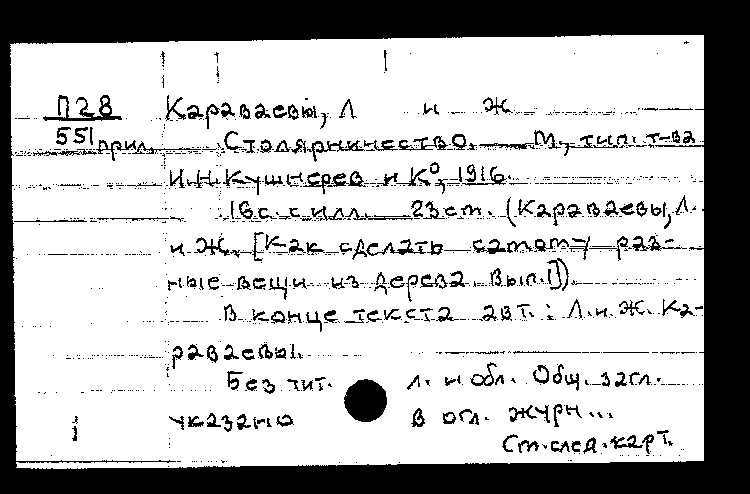 П28 Караваевы, Л и Ж
551 прил. Столярничество. — М., тип. т-ва
И.Н. Кушнерев и К⁰, 1916.
16с. с илл. 23см. (Караваевы, Л.
и Ж. [Как сделать самому раз-
ные вещи из дерева. Вып. I]).
В конце текста авт.: Л. и Ж. Ка-
раваевы.
Без тит. л. и обл. Общ. загл.
указано в огл. журн...
См. след. карт.